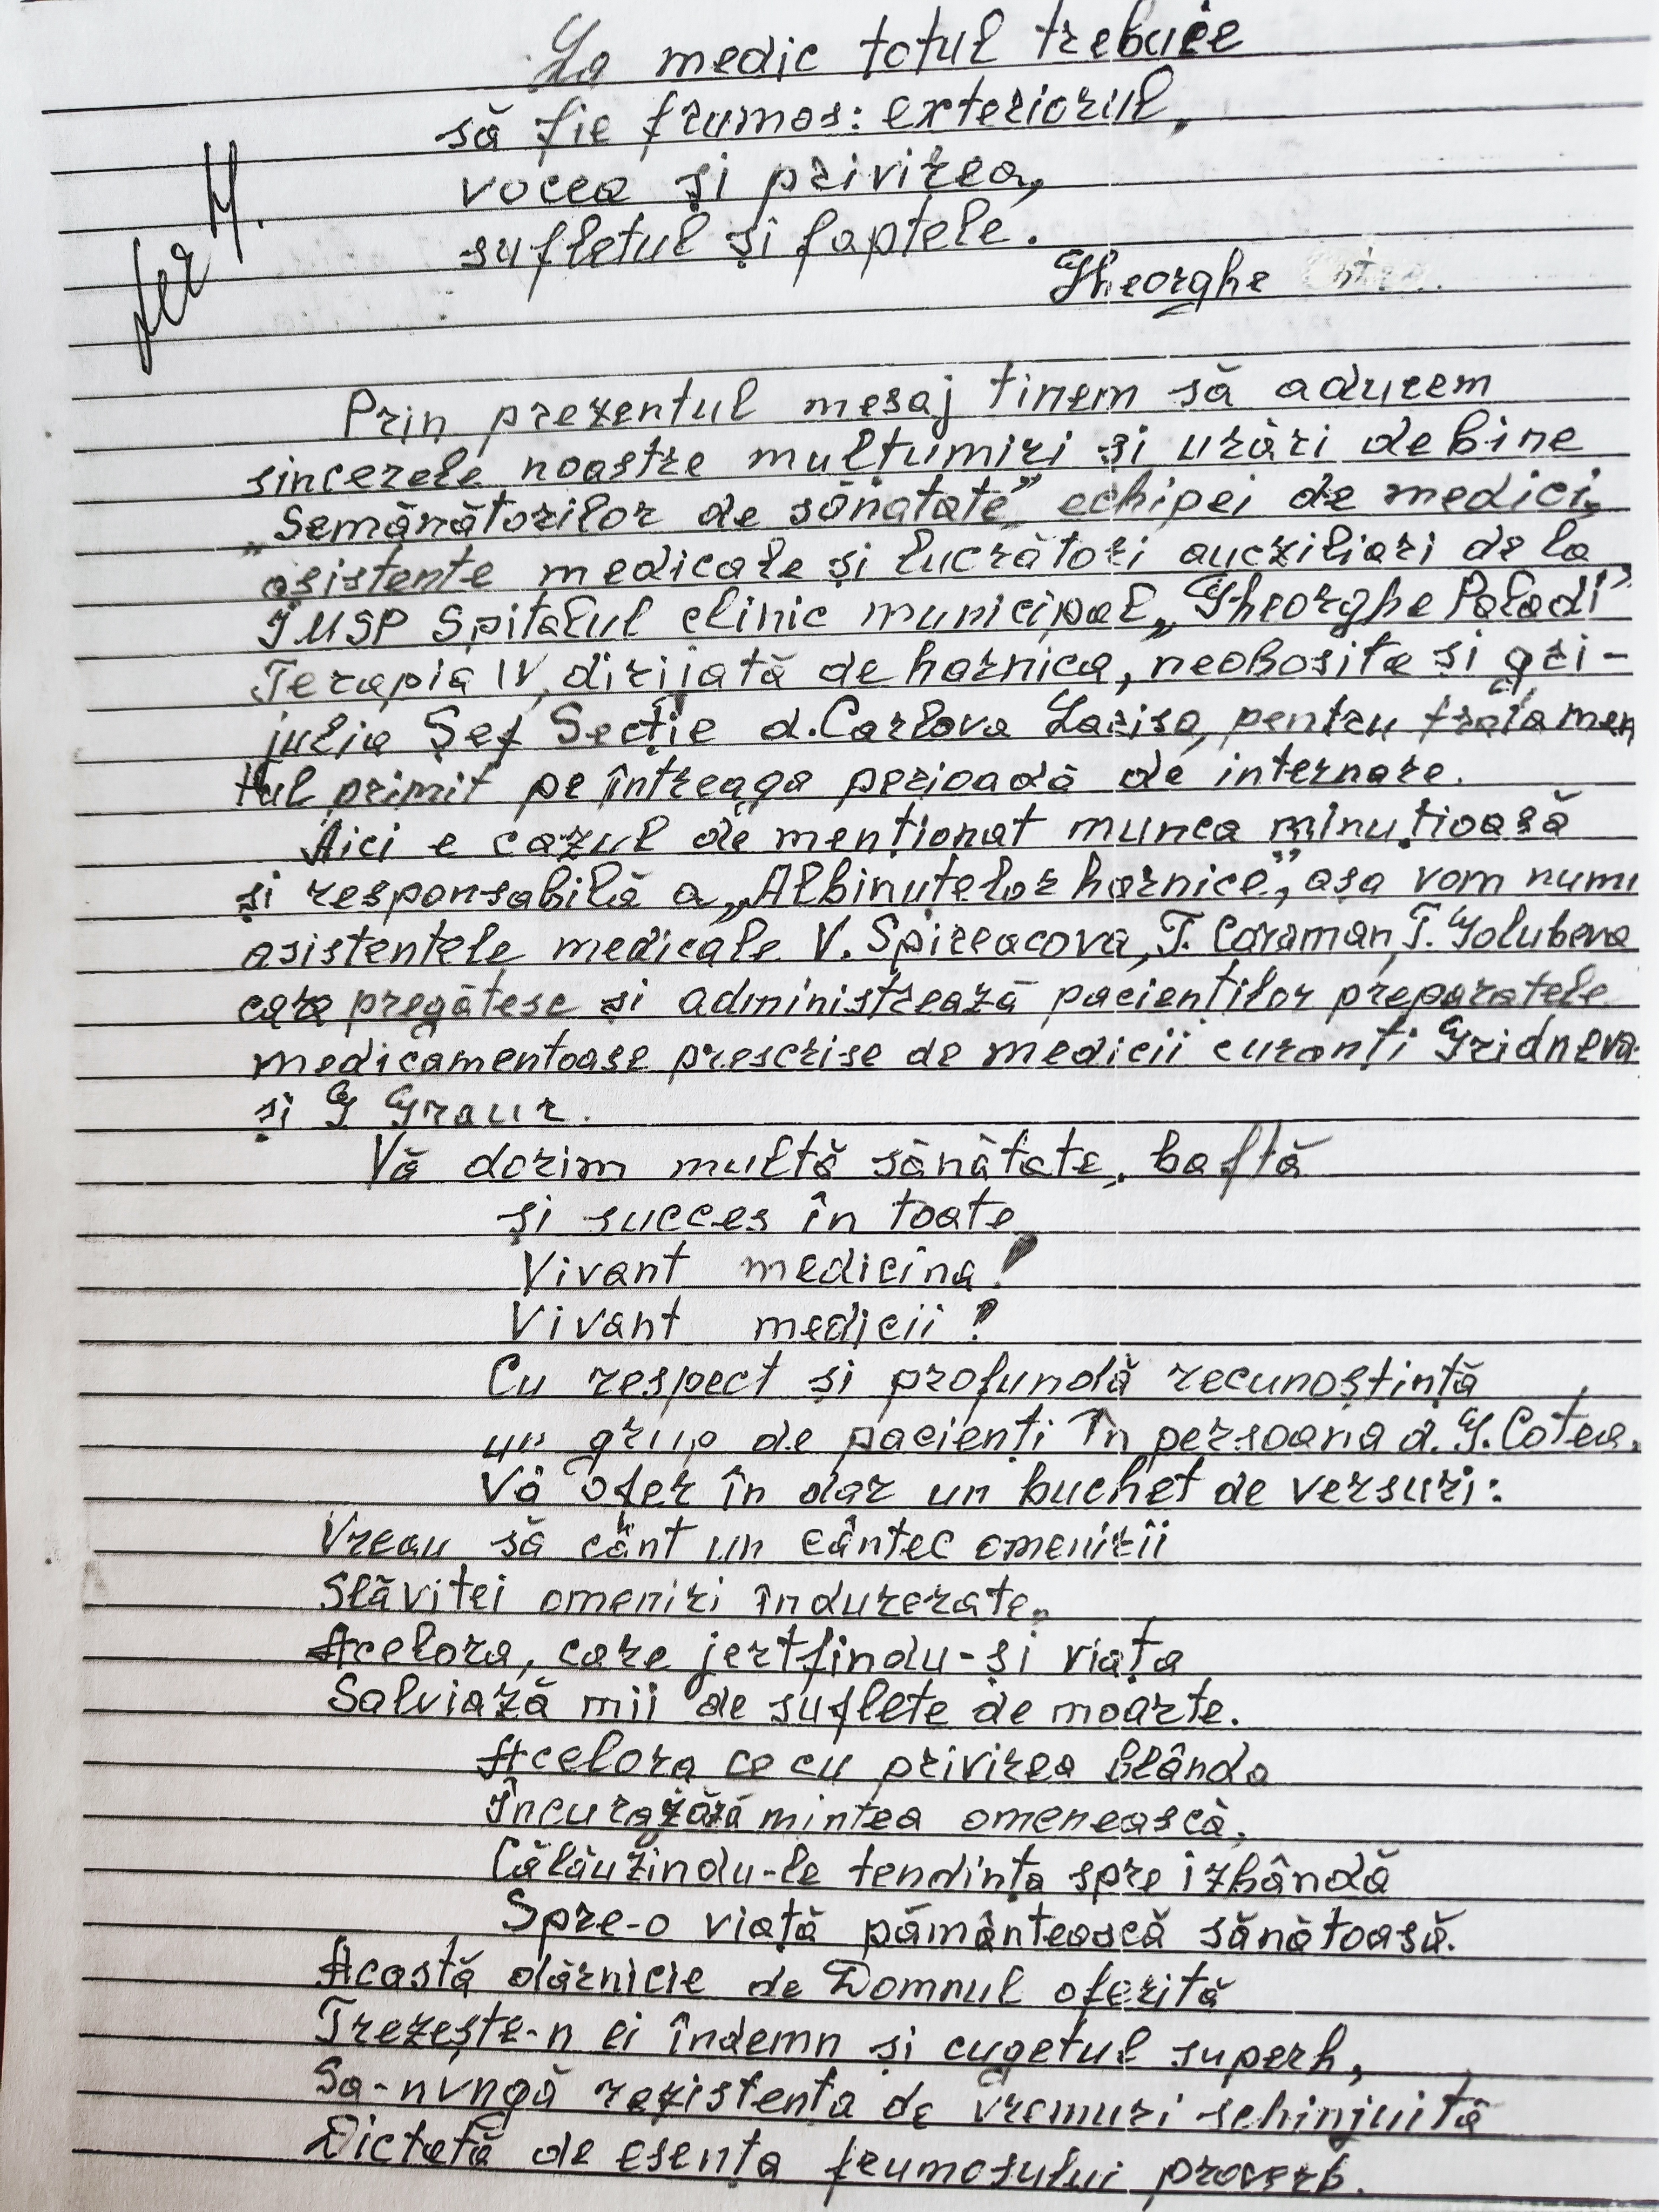 La medic totul trebuie
să fie frumos: exteriorul,
vocea și privirea,
sufletul și faptele.
Gheorghe
Prin prezentul mesaj tinem să aducem
sincerele noastre mulțumiri și urări de bine
„Semănătorilor de sănatate” echipei de medici,
asistente medicale și lucrători auxziliari de la
IMSP Spitalul clinic municipal „Gheorghe Paladi”
Terapia IV, dirijată de harnica, neobosita și gri-
julia Șef Secție d. Carlova Larisa, pentru tratamen
tul primit pe întreaga perioadă de internare.
Aici e cazul de menționat munca minuțioasă
și responsabilă a „Albinuțelor harnice”, așa vom numi
asistentele medicale V. Spireacova, T. Caraman, T. Golubeva
care pregătesc și administrează pacienților preparatele
medicamentoase prescrise de medicii curanți Gridneva
și G Graur.
Vă dorim multă sănătate, baftă
și succes în toate
Vivant medicina!
Vivant medicii!
Cu respect și profundă recunoștință
un grup de pacienți în persoana d. G. Cotea.
Vă ofer în dar un buchet de versuri:
Vreau să cânt un cântec omenirii
Slăvitei omeniri îndurerate.
Acelora, care jertfindu-și viața
Salviază mii de suflete de moarte.
Acelora ce cu privirea blânda
Încurajăză mintea omenească,
Călăuzindu-le tendința spre izbândă
Spre-o viață pământească sănătoasă.
Acastă dărnicie de Domnul oferită
Trezește-n ei îndemn și cugetul superb,
Sa-nvngă rezistenta de vremuri schinjuită
Dictată de esența frumosului proverb.